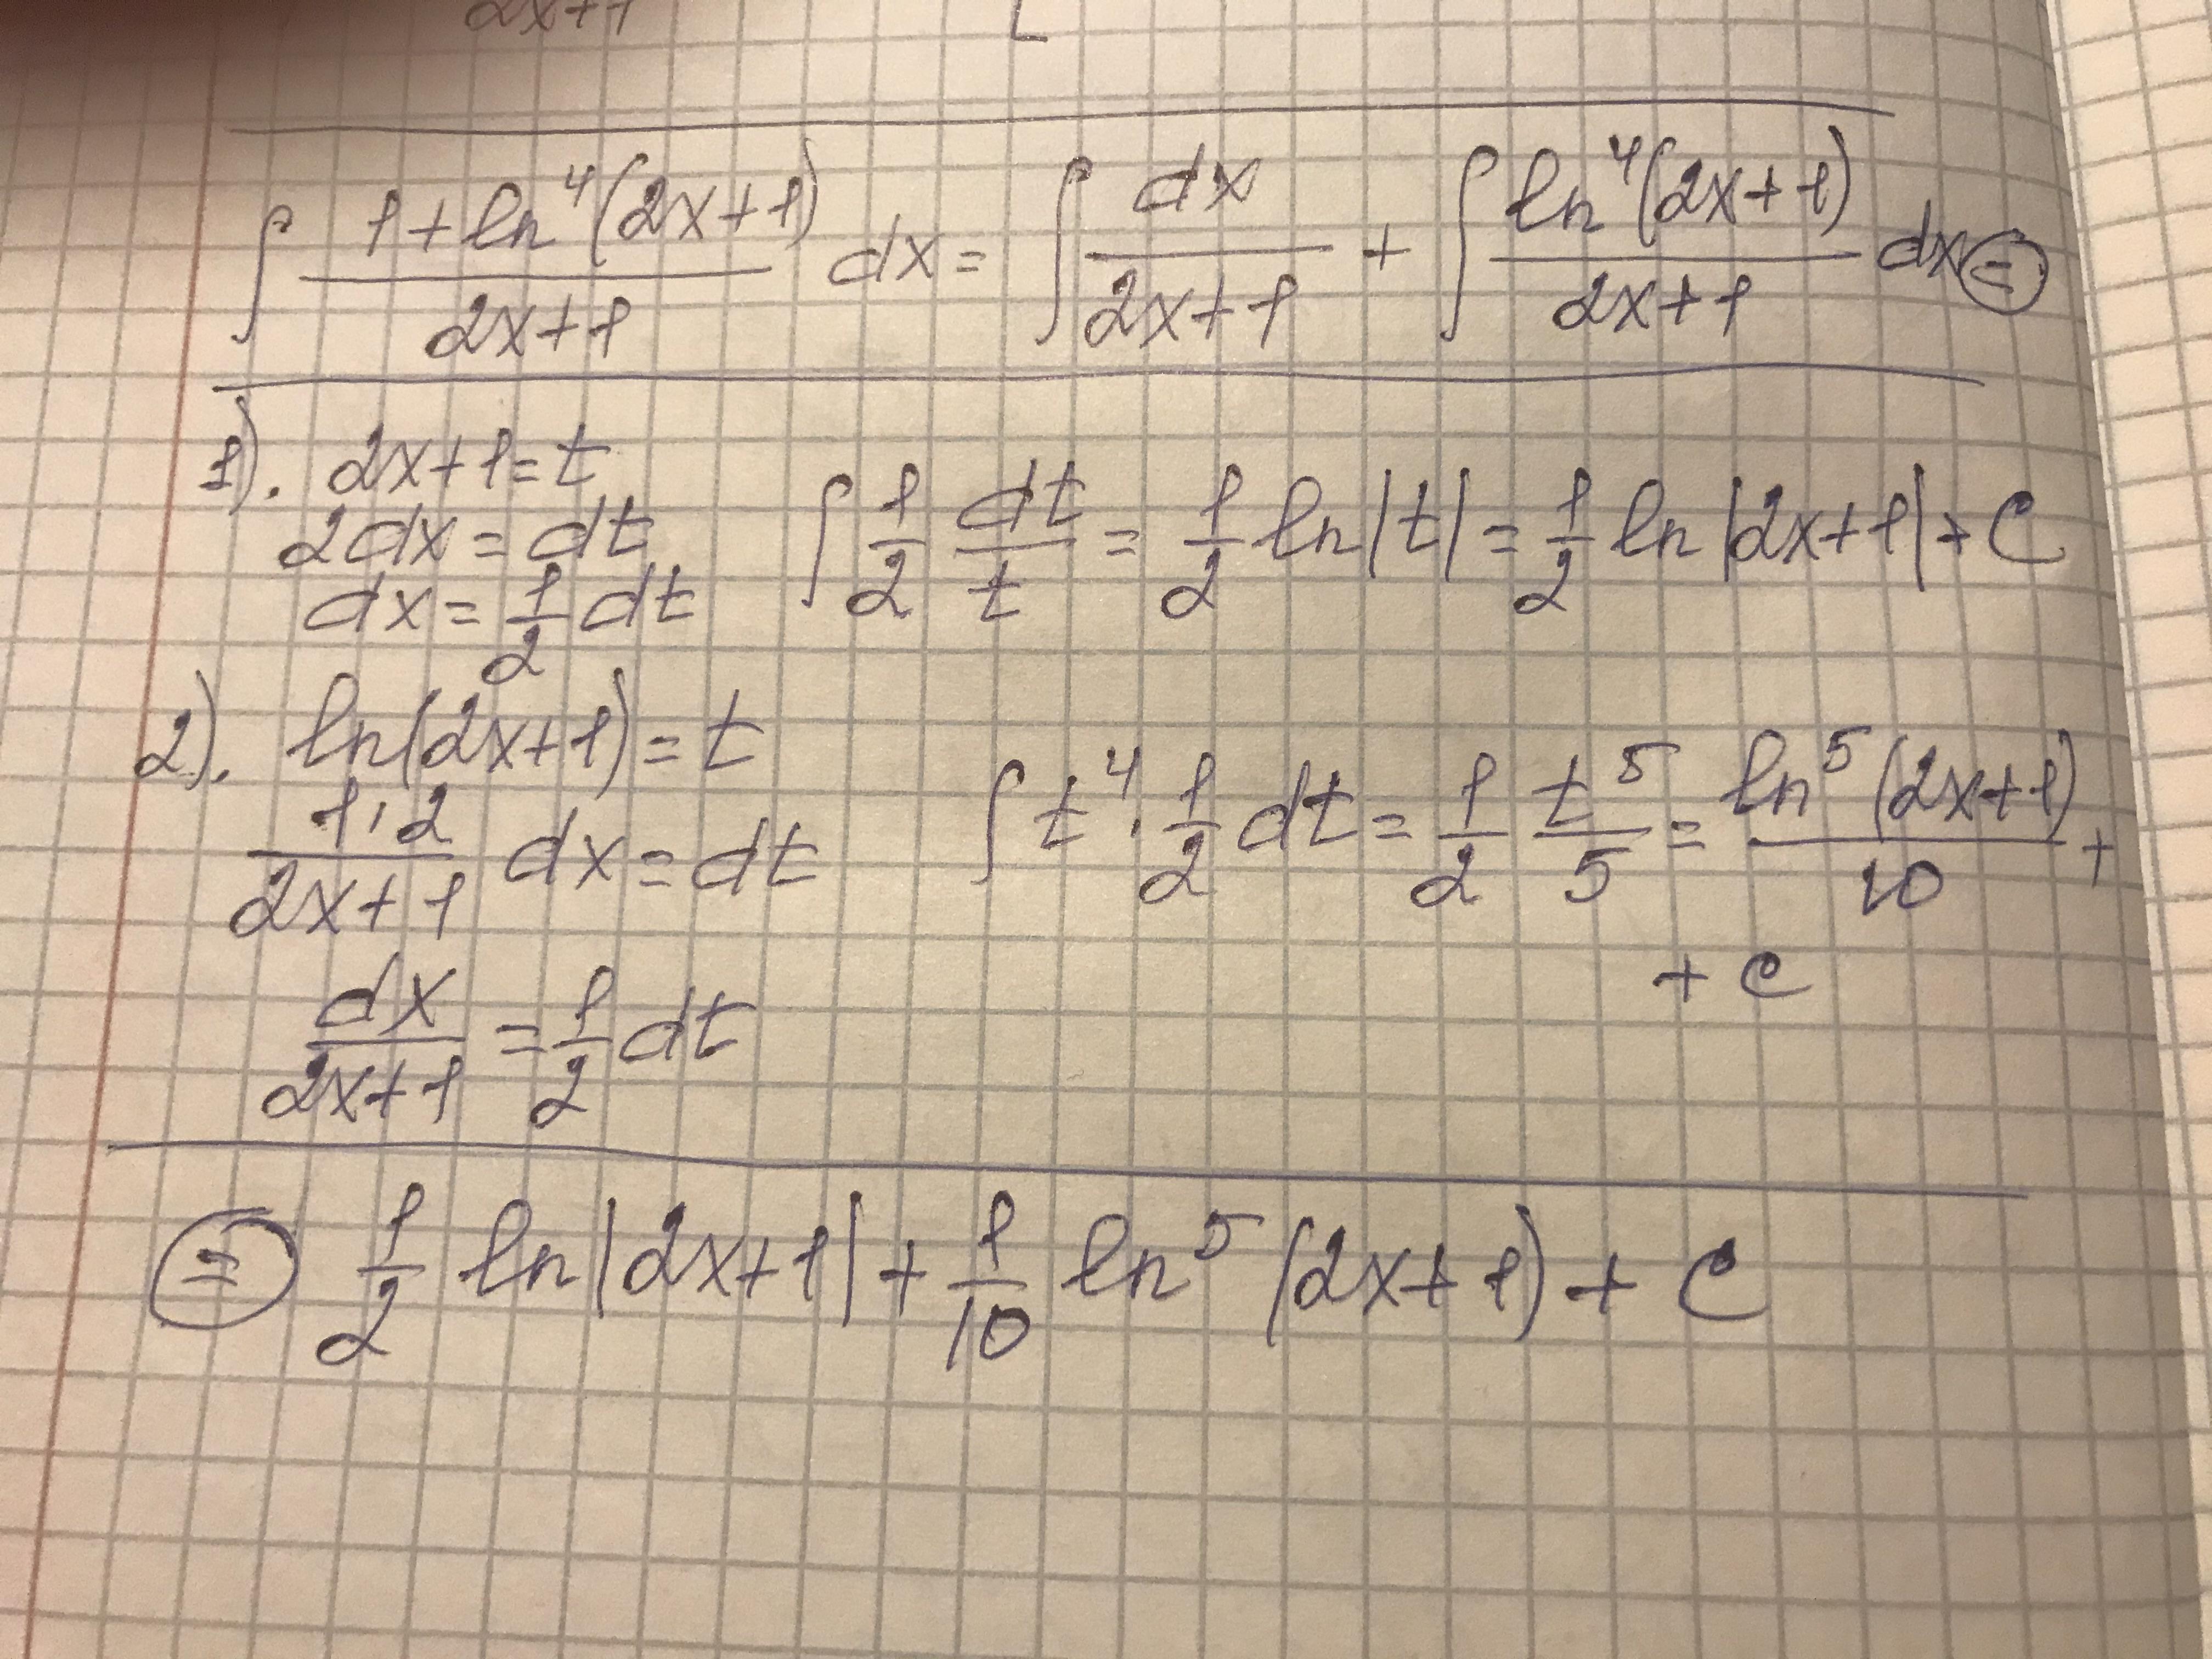 2x+1
∫ (1+ln⁴(2x+1))/(2x+1) dx = ∫ dx/(2x+1) + ∫ ln⁴(2x+1)/(2x+1) dx =
1). 2x+1=t
2dx=dt
dx=1/2 dt
∫ 1/2 dt/t = 1/2 ln|t| = 1/2 ln|2x+1|+C
2). ln(2x+1)=t
(1·2)/(2x+1) dx=dt
dx/(2x+1) = 1/2 dt
∫ t⁴·1/2 dt = 1/2 t⁵/5 = ln⁵(2x+1)/10 +
+ C
= 1/2 ln|2x+1| + 1/10 ln⁵(2x+1) + C